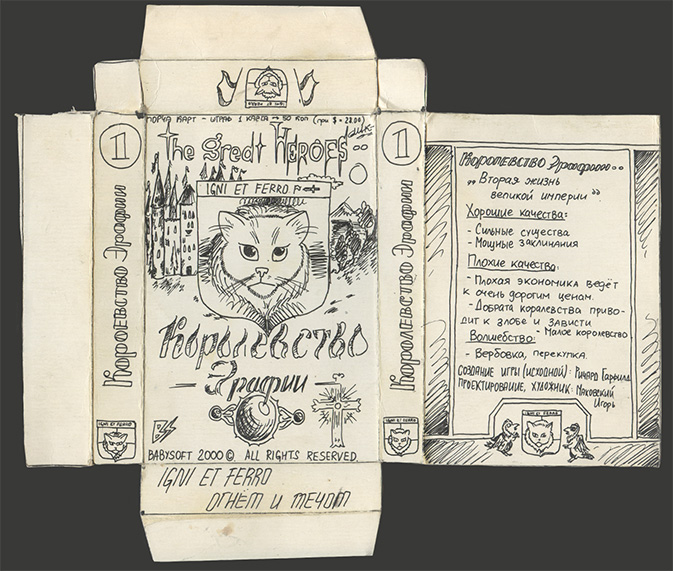 IGNI ET FERRO
ПОРЧА КАРТ - ШТРАФ 1 КАРТА → 50 КОП (при $ = 28.00)
The great HEROES
IGNI ET FERRO
Королевство
Эрафии
BABYSOFT 2000 © ALL RIGHTS RESERVED
IGNI ET FERRO
ОГНЁМ И МЕЧОМ
1
Королевство Эрафии
IGNI ET FERRO
1
Королевство Эрафии
IGNI ET FERRO
Королевство Эрафии..
„Вторая жизнь
великой империи"
Хорошие качества:
- Сильные существа
- Мощные заклинания
Плохие качества:
- Плохая экономика ведёт
к очень дорогим ценам.
- Добрата королевства приво-
дит к злобе и зависти
- Малое королевство
Волшебство:
- Вербовка, перекупка.
СОЗДАНИЕ ИГРЫ (ИСХОДНОЙ): Ричард Гарфилд
ПРОЕКТИРОВАНИЕ, ХУДОЖНИК: Маковский
Игорь
IGNI ET FERRO